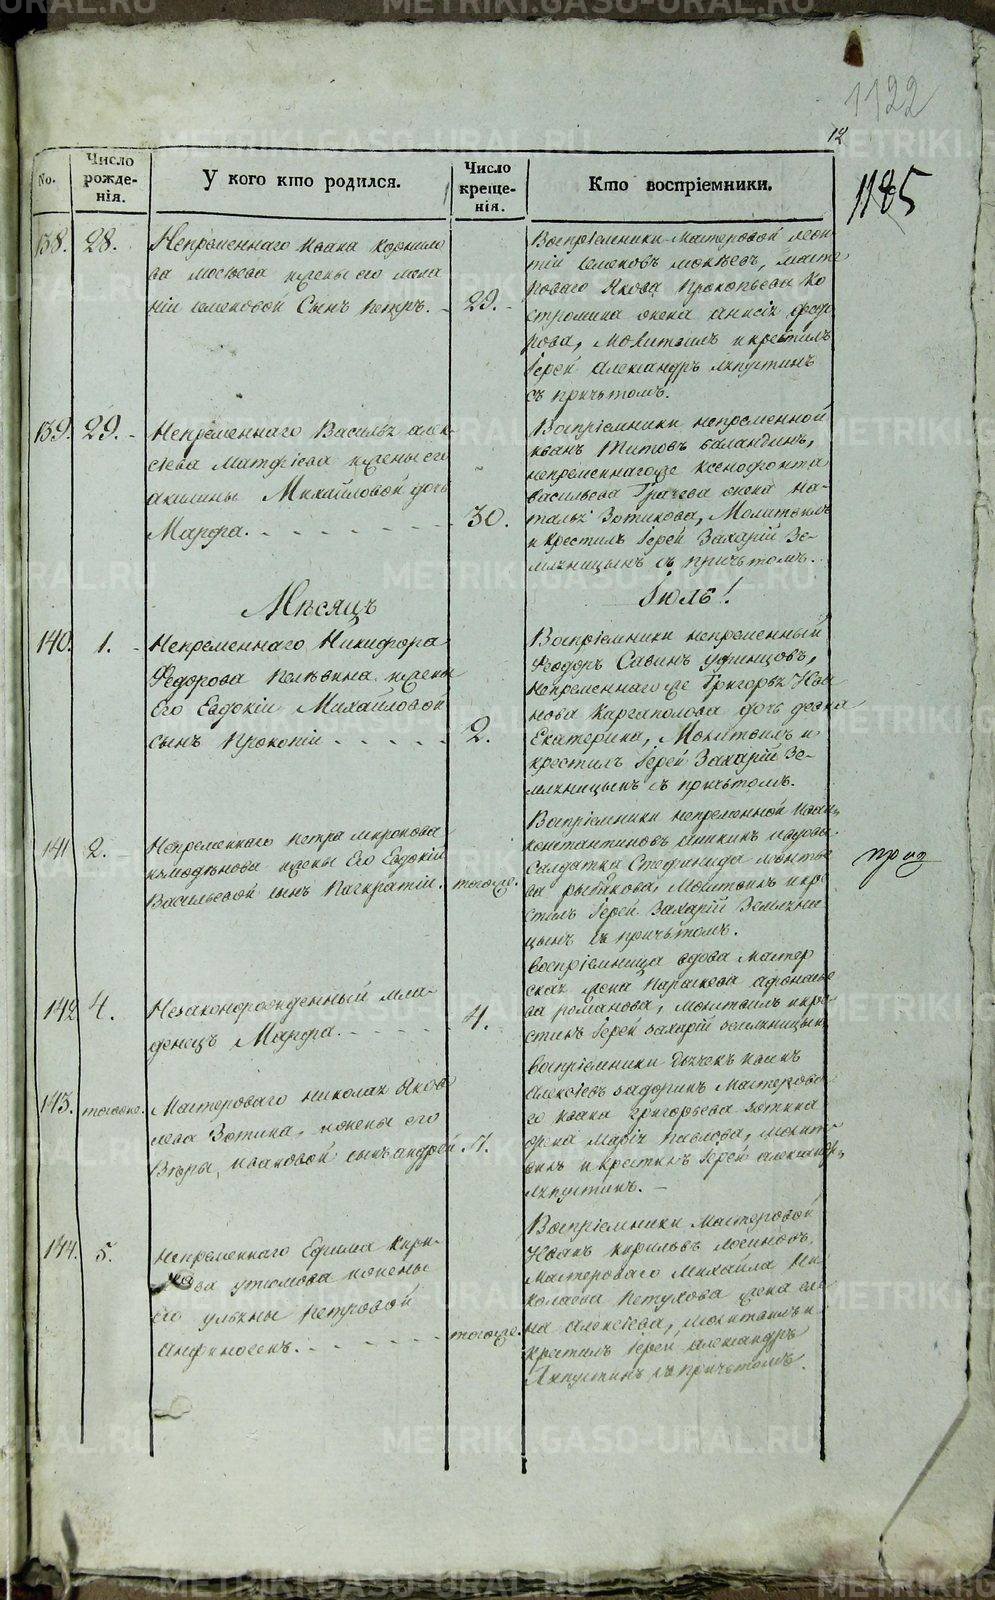 1122
12
1185
No.
Число рожде-нія.
У кого кто родился.
Число креще-нія.
Кто воспріемники.
138.
28.
Непременнаго Ивана Корнило
ва Мосѣева жены его Мела
ніи Семеновой Сынъ Петръ.
29.
Воспріемники Мастеровой Леон
тій Семеновъ, Масте
роваго Якова Прокопьева Ко
стромина жена Анисія Федо
рова, Молитвилъ и крестилъ
Іерей Александръ Ляпустинъ
съ причьтомъ.
139.
29.
Непременнаго Василья Алек
сіева Матфіева жены его
Акилины Михайловой дочь
Марфа.
30.
Воспріемники непременной
Иванъ Титовъ Баландинъ,
непременнагоже Ксенофонта
Васильева Грачева жена На-
талья Зотикова, Молитвилъ
и крестилъ Іерей Захарій Зе-
млѣницынъ съ причьтомъ.
Мѣсяцъ
Іюль!
140.
1.
Непременнаго Никифора
Федорова Пелевина жены
Его Евдокіи Михайловой
сынъ Прокопій
2.
Воспріемники непременный
Феодоръ Савинъ Уфинцовъ,
непременнагоже Григорья Ива
нова Каргаполова дочь девка
Екатерина, Молитвилъ и
крестилъ Іерей Захарій Зе-
млѣницынъ съ причьтомъ.
141
2.
Непременнаго Петра Миронова
жены Его Евдокіи
Васильевой сынъ Панкратій.
тогоже.
Воспріемники непременной Иван
Константиновъ и вдова
Солдатка Стефанида
ва Рыбакова, Молитвилъ и кре
стилъ Іерей Захарій Землѣни
цынъ съ причьтомъ.
142
4.
Незаконорожденный мла-
денецъ Марфа.
4.
Воспріемница вдова Мастер
ская жена Параскева Афонасье
ва Романова, Молитвилъ и кре
стилъ Іерей Захарій Землѣницынъ
143.
тогоже.
Мастероваго Николая Яков
лева Зотина, жены его
Вѣры Ивановой сынъ Андрей.
7.
Воспріемники Дьячекъ Иванъ
Алексіевъ Задоринъ Мастерова
го Ивана Григорьева Зотина
жена Марія Павлова, Молит-
вилъ и крестилъ Іерей Александръ
Ляпустинъ.
144.
5.
Непременнаго Ефима Кири
ва Утюмова жены
его Ульяны Петровой
Анфиногенъ.
тогоже.
Воспріемники Мастеровой
Иванъ Кириловъ Лосиновъ,
Мастероваго Михайла Ни
колаева Петухова жена Еле
на Алексіева, Молитвилъ и
крестилъ Іерей Александръ
Ляпустинъ съ причьтомъ.
METRIKI.GASO-URAL.RU